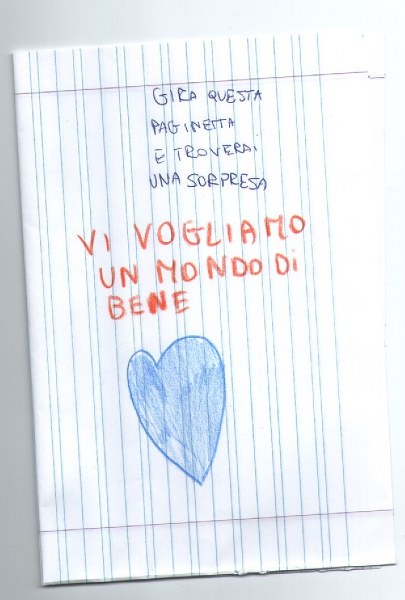 GIRA QUESTA
PAGINETTA
E TROVERAI
UNA SORPRESA
VI VOGLIAMO
UN MONDO DI
BENE